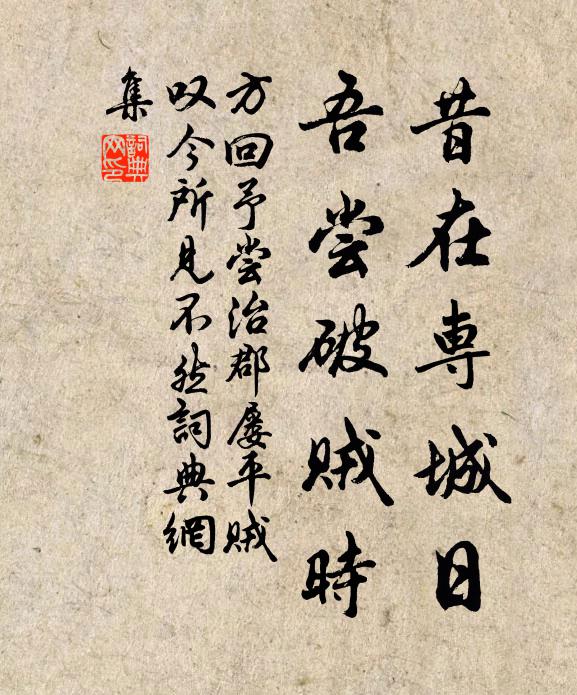 昔在専城日
吾尝破贼時
方回予尝治郡屡平贼
叹今所见不然詞典網
集
詞典網印